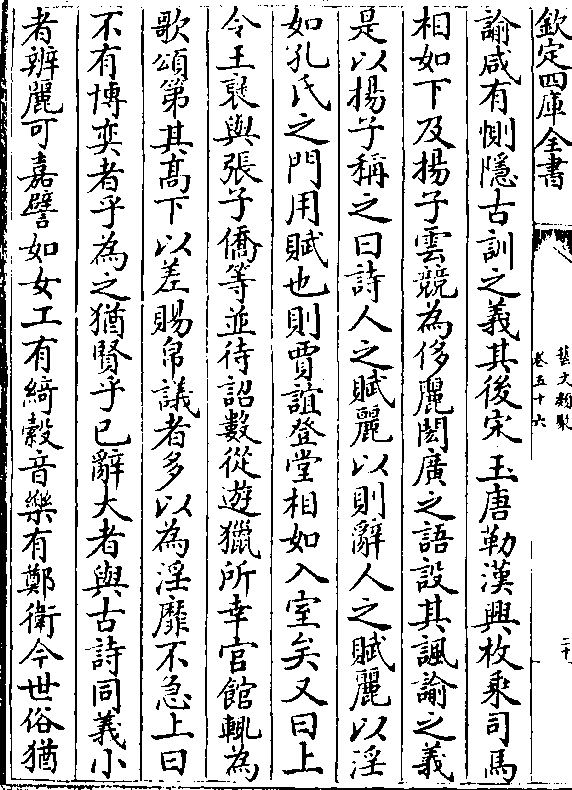 欽定四庫全書
藝文類聚
卷五十六
二十
諭咸有惻隱古訓之義其後宋玉唐勒漢興枚乘司馬
相如下及揚子雲競為侈麗閎廣之語設其諷諭之義
是以揚子稱之曰詩人之賦麗以則辭人之賦麗以淫
如孔氏之門用賦也則賈誼登堂相如入室矣又曰上
令王襃與張子僑等並待詔數從遊獵所幸官館輒為
歌頌第其髙下以差賜帛議者多以為淫靡不急上曰
不有博奕者乎為之猶賢乎已辭大者與古詩同義小
者辨麗可嘉譬如女工有綺縠音樂有鄭衛今世俗猶